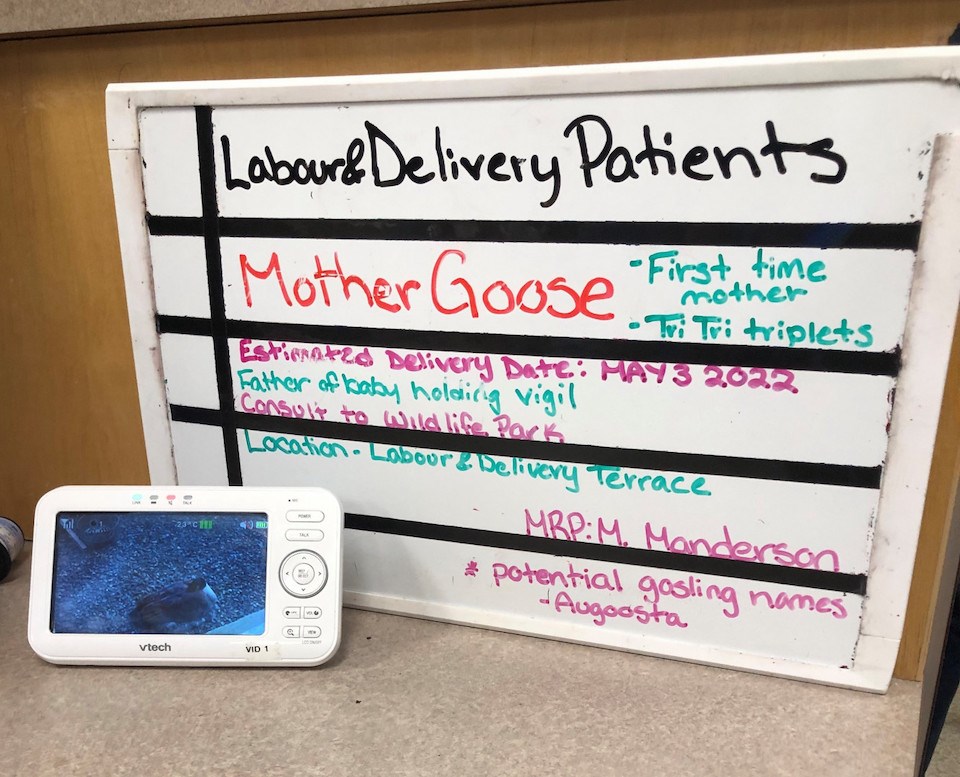 Labour & Delivery Patients
Mother Goose
- First time
mother
- Tri Tri triplets
Estimated Delivery Date: MAY 3 2022
Father of baby holding vigil
Consult to Wildlife Park
Location - Labour & Delivery Terrace
MRP: M. Manderson
* potential gosling names
- Augoosta
23°C
POWER
TALK
vtech
VID 1